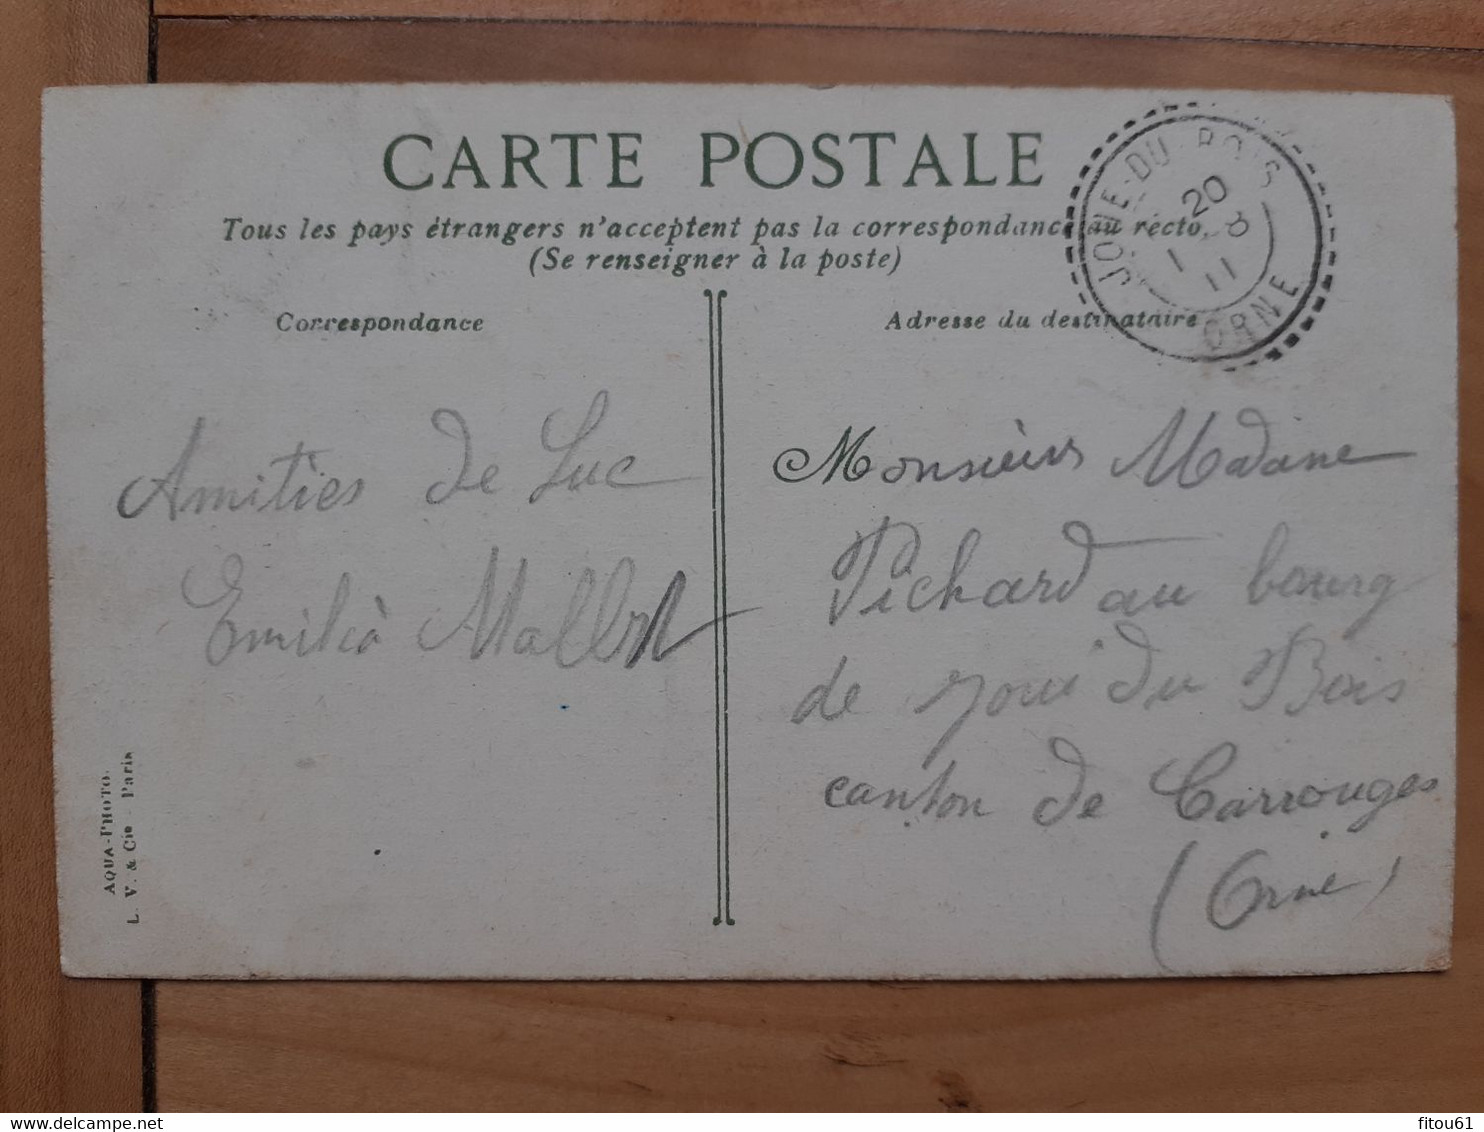 CARTE POSTALE
Tous les pays étrangers n'acceptent pas la correspondance au recto,
(Se renseigner à la poste)
Correspondance
Adresse du destinataire
JOUE-DU-BOIS
20
1 8
11
ORNE
Amitiés de Luc
Emilia
Monsieurs Madane
Pichard au bourg
de Joui du Bois
canton de Carrouges
(Orne)
AQUA-PHOTO.
L. V. & Cie - Paris
fitou61